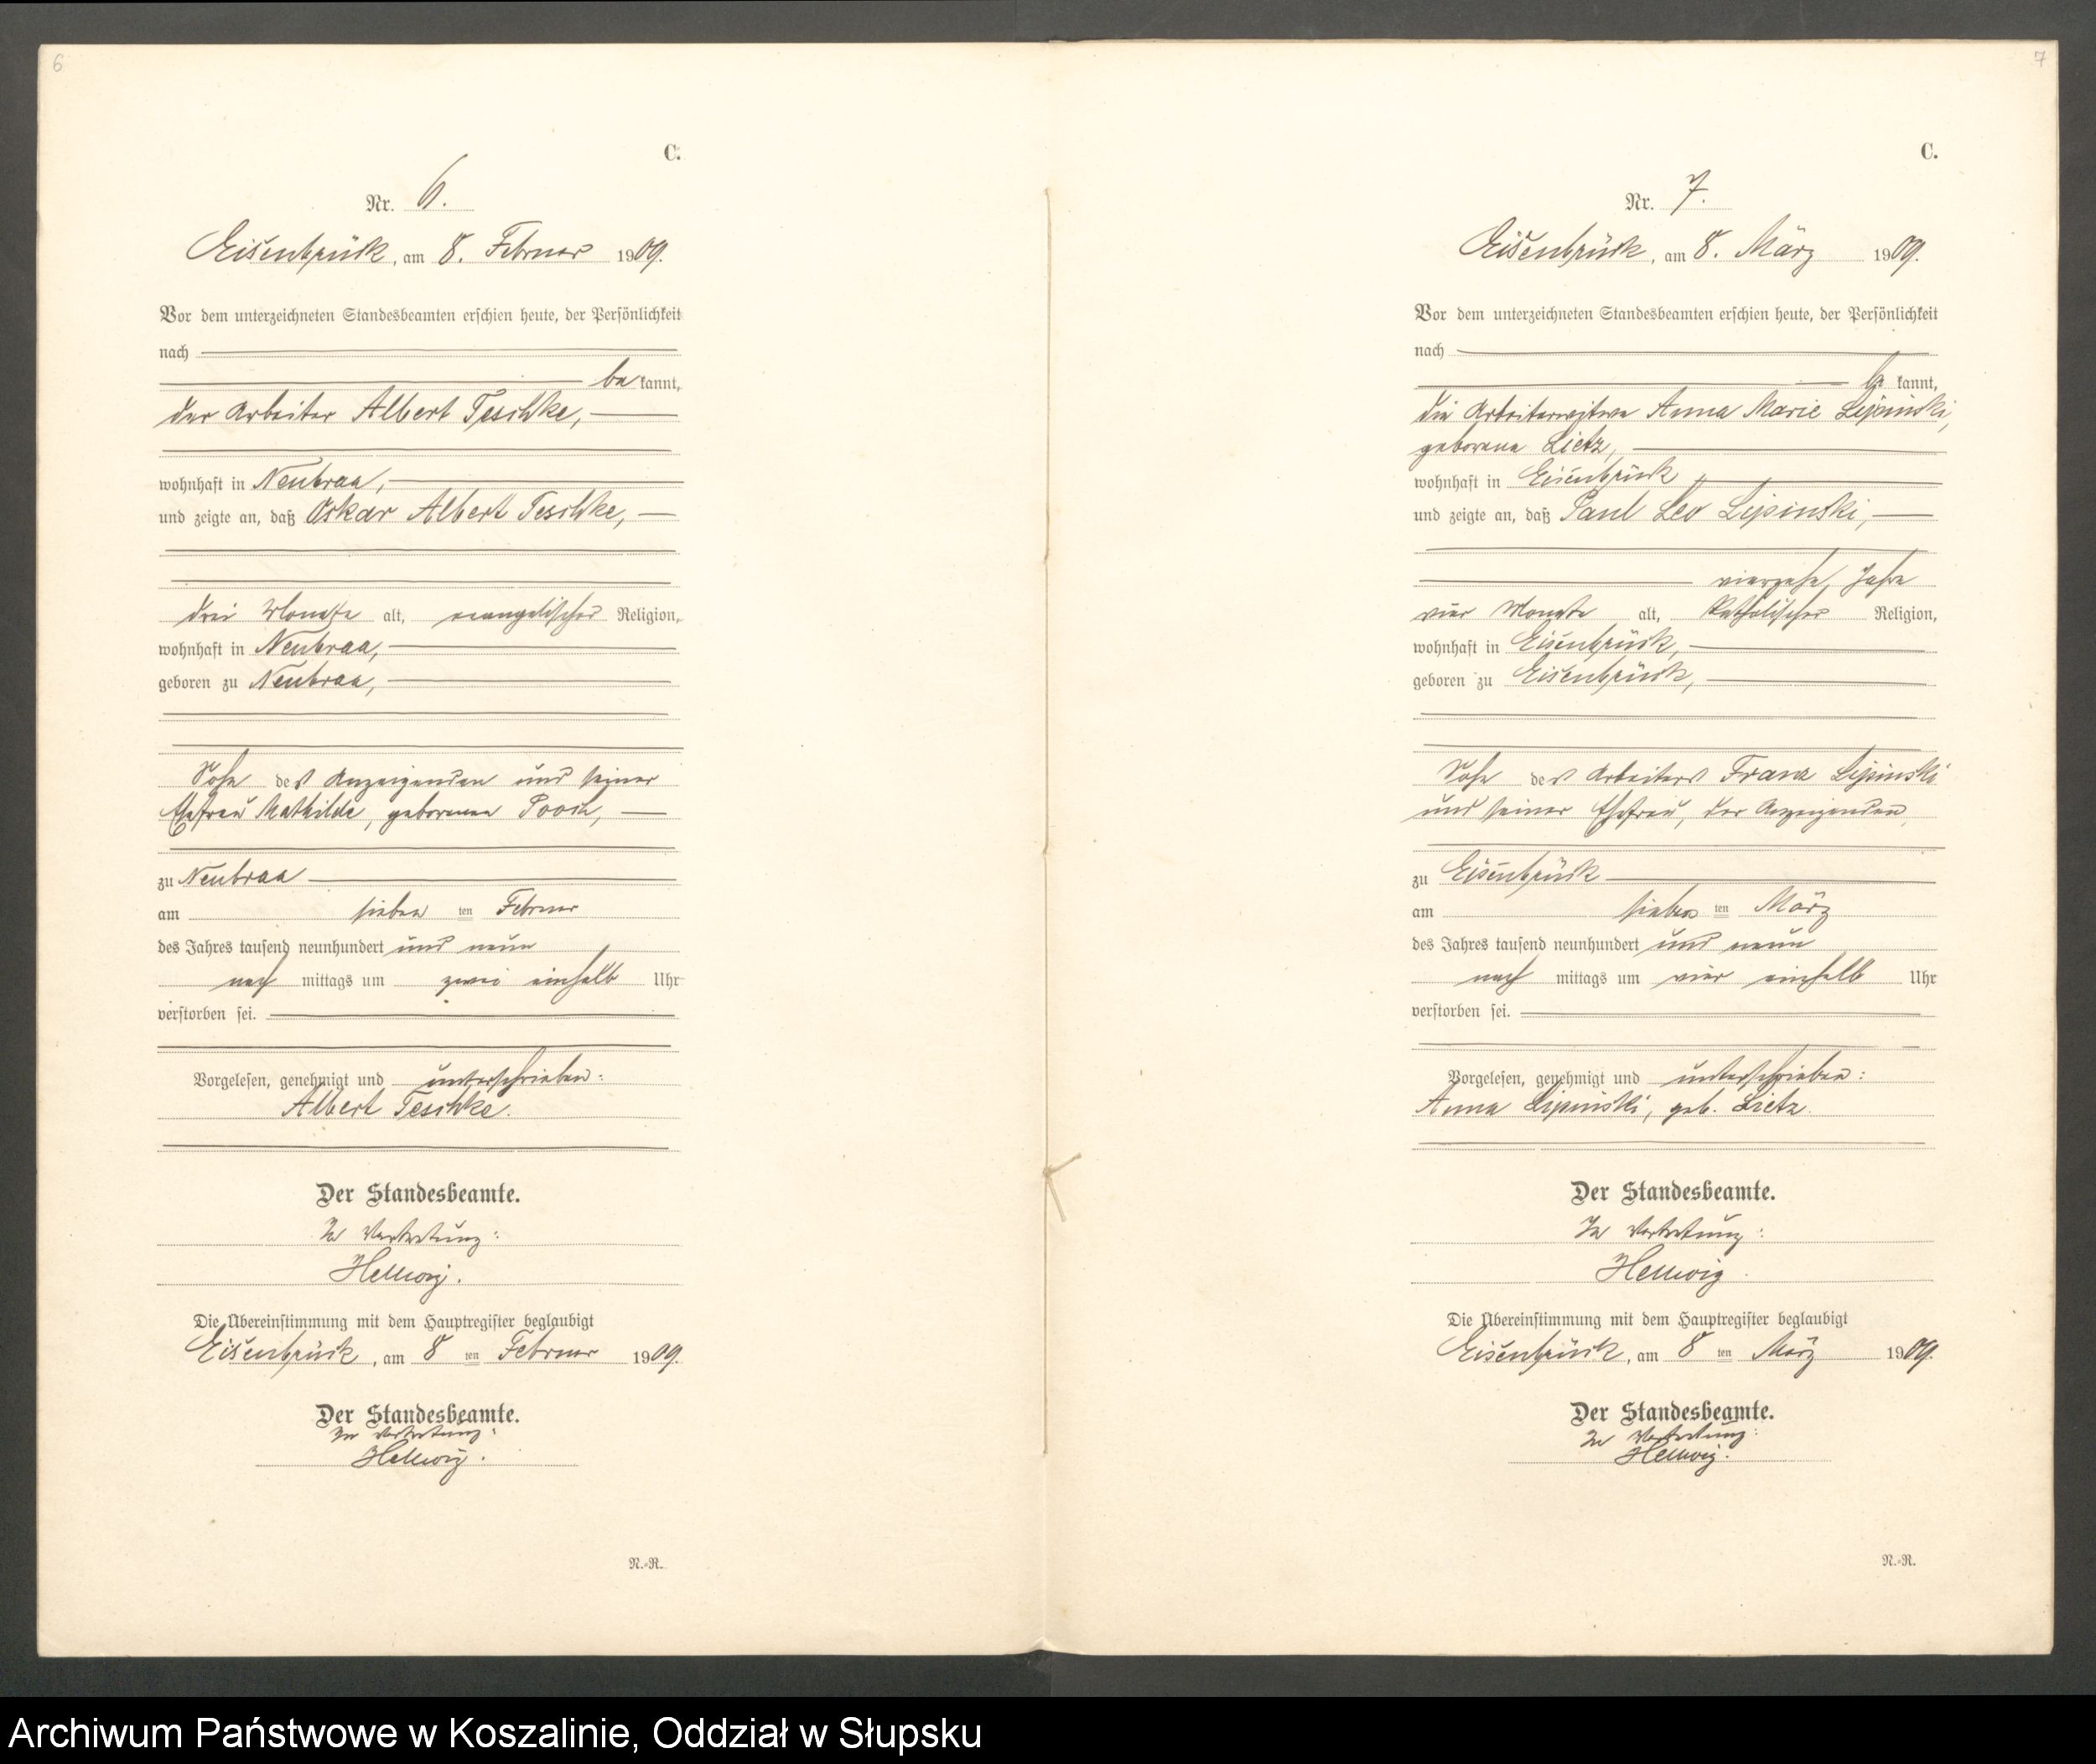 6
C.
Nr. 6.
Eisenbrück, am 8. Februar 1909.
Vor dem unterzeichneten Standesbeamten erschien heute, der Persönlichkeit
nach
be kannt,
der Arbeiter Albert Teschke,
wohnhaft in Neubraa,
und zeigte an, daß Oskar Albert Teschke,
drei Monate alt, evangelischer Religion,
wohnhaft in Neubraa,
geboren zu Neubraa,
Sohn des Anzeigenden und seiner
Ehefrau Mathilde, geborenen Pooch,
zu Neubraa
am sieben ten Februar
des Jahres tausend neunhundert und neun
nach mittags um zwei einhalb Uhr
verstorben sei.
Vorgelesen, genehmigt und unterschrieben:
Albert Teschke.
Der Standesbeamte.
In Vertretung:
Hellwig.
Die Übereinstimmung mit dem Hauptregister beglaubigt
Eisenbrück, am 8 ten Februar 1909.
Der Standesbeamte.
In Vertretung:
Hellwig.
N.-R.
7
C.
Nr. 7.
Eisenbrück, am 8. März 1909.
Vor dem unterzeichneten Standesbeamten erschien heute, der Persönlichkeit
nach
be kannt,
die Arbeiterwitwe Anna Marie Lipinski,
geborene Lietz,
wohnhaft in Eisenbrück,
und zeigte an, daß Paul Leo Lipinski,
vierzehn Jahre
vier Monate alt, katholischer Religion,
wohnhaft in Eisenbrück,
geboren zu Eisenbrück,
Sohn des Arbeiters Franz Lipinski
und seiner Ehefrau, der Anzeigenden,
zu Eisenbrück
am sieben ten März
des Jahres tausend neunhundert und neun
nach mittags um vier einhalb Uhr
verstorben sei.
Vorgelesen, genehmigt und unterschrieben:
Anna Lipinski, geb. Lietz.
Der Standesbeamte.
In Vertretung:
Hellwig.
Die Übereinstimmung mit dem Hauptregister beglaubigt
Eisenbrück, am 8 ten März 1909.
Der Standesbeamte.
In Vertretung:
Hellwig.
N.-R.
Archiwum Państwowe w Koszalinie, Oddział w Słupsku